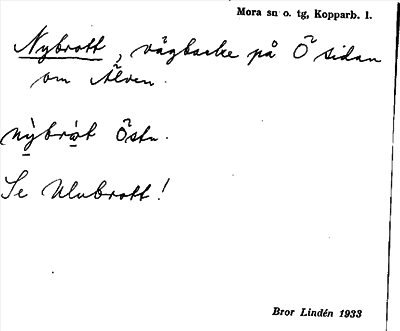 Mora sn o. tg, Kopparb. l.
Nybrott, vägbacke på Ö sidan
om Älven.
nỳbròt Östn.
Se Ulubrott!
Bror Lindén 1933